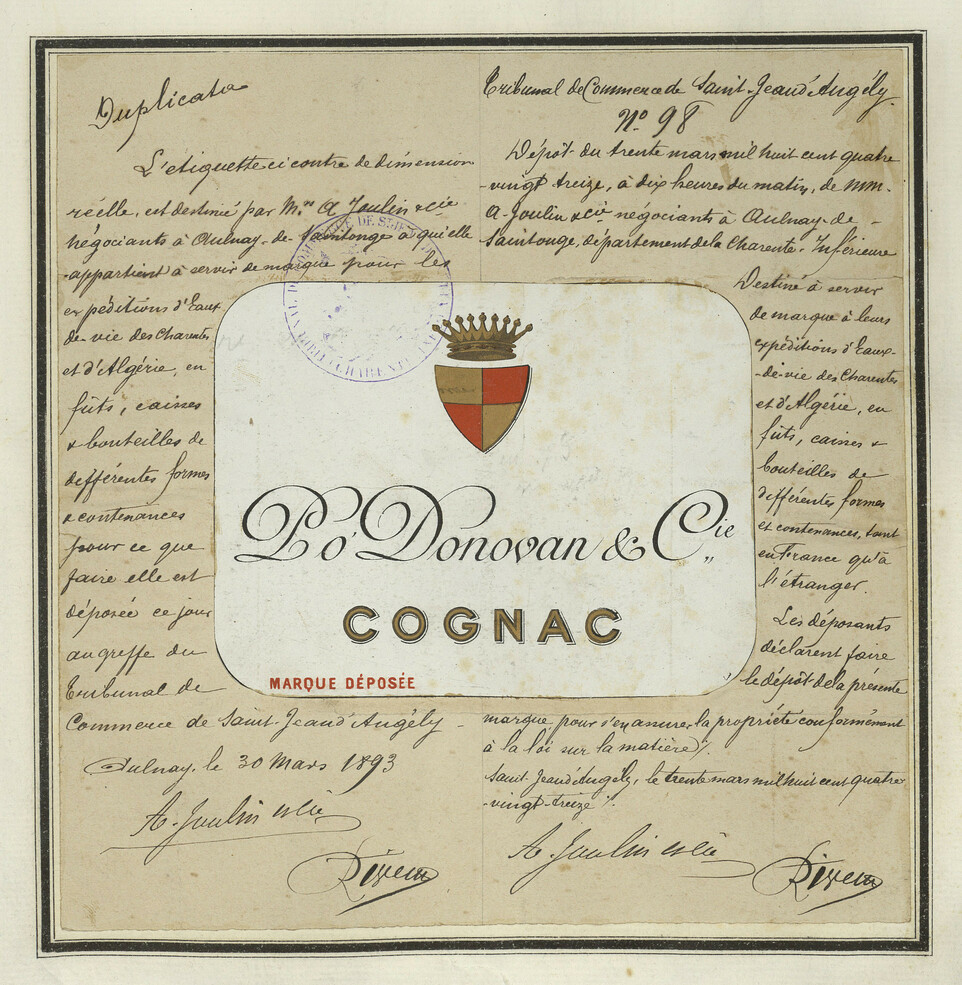 Duplicata
L'étiquette ci contre de dimension
réelle, est destinée par M.rs A Joulin & cie
négociants à Aulnay-de-Saintonge à qui elle
appartient à servir de marque pour les
expéditions d'Eaux-
de-vie des Charentes
et d'Algérie, en
fûts, caisses
& bouteilles de
différentes formes
& contenances
pour ce que
faire elle est
déposée ce jour
au greffe du
Tribunal de
Commerce de Saint-Jean d'Angély -
Aulnay, le 30 Mars 1893
A. Joulin & Cie
Tribunal de Commerce de Saint-Jean d'Angély.
N.º 98
Dépôt du trente mars mil huit cent quatre
-vingt treize, à dix heures du matin, de MM.
A. Joulin & Cie négociants à Aulnay-de-
Saintonge, département de la Charente-Inférieure
Destiné à servir
de marque à leurs
expéditions d'Eaux-
-de-vie des Charentes
et d'Algérie, en
fûts, caisses &
bouteilles de
différentes formes
et contenances, tant
en France qu'à
l'étranger.
Les déposants
déclarent faire
le dépôt de la présente
marque pour s'en assurer la propriété conformément
à la loi sur la matière ./.
Saint Jean d'Angély, le trente mars mil huit cent quatre-
-vingt-treize ./.
A. Joulin & Cie
P. O'Donovan & Cie
COGNAC
MARQUE DÉPOSÉE